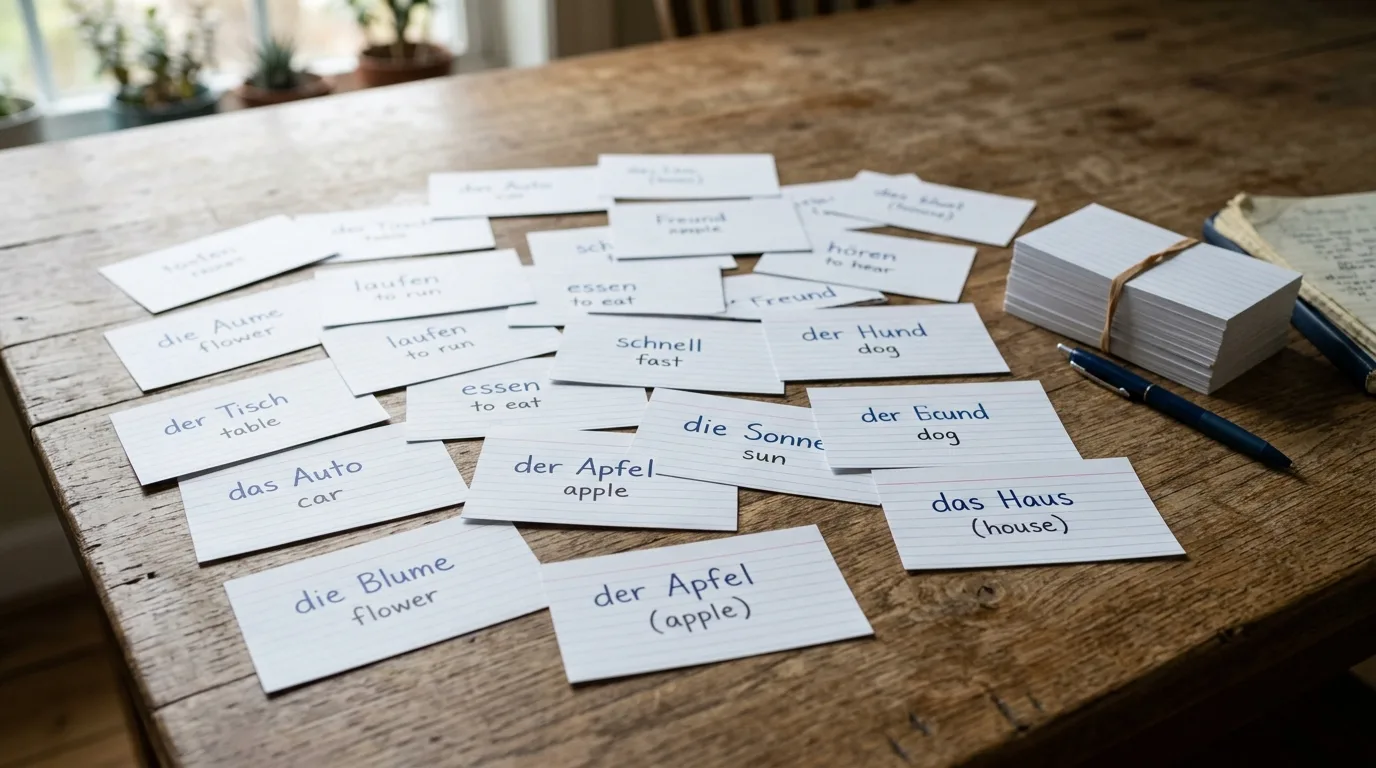 das Auto
car
Freund
apple
der Tisch
table
hören
to hear
laufen
to run
essen
to eat
Freund
die Aume
flower
laufen
to run
schnell
fast
der Hund
dog
der Tisch
table
essen
to eat
die Sonne
sun
der Ecund
dog
das Auto
car
der Apfel
apple
das Haus
(house)
die Blume
flower
der Apfel
(apple)